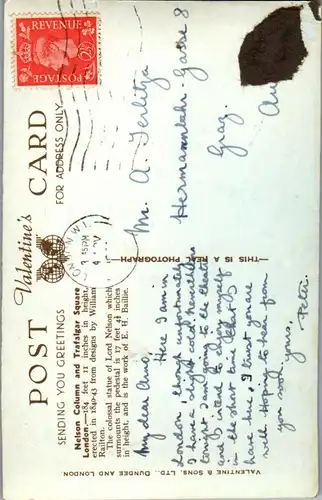 POST CARD
Valentine's
SENDING YOU GREETINGS
FOR ADDRESS ONLY
Nelson Column and Trafalgar Square
London.—184 feet 11 inches in height,
erected in 1840-43 from designs by William
Railton.
The colossal statue of Lord Nelson which
surmounts the pedestal is 17 feet 4½ inches
in height, and is the work of E. H. Baillie.
My dear Arno,
Here I am in
London, though unfortunately
I have a slight cold. Nevertheless
tonight I am going to the theatre
and I intend to enjoy myself
in the short time that I
have here. I trust you are
well. Hoping to hear from
you soon,
Yours,
Peter.
THIS IS A REAL PHOTOGRAPH
VALENTINE & SONS, LTD., DUNDEE AND LONDON.
REVENUE
POSTAGE
LONDON
15PM
Mr. A. Terlitza
Hermannbahr-Gasse 8
Graz.
Au